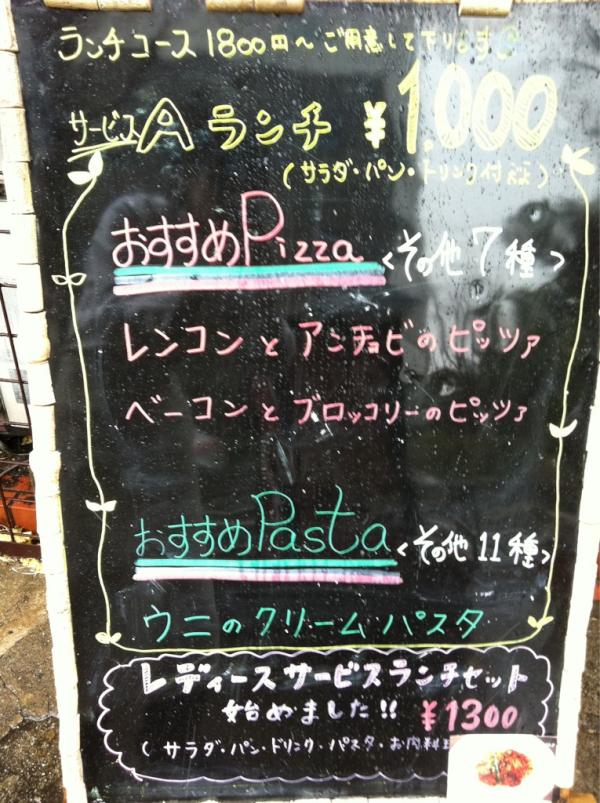 ランチコース1800円〜ご用意して下ります
サービスAランチ ¥1.000
(サラダ・パン・ドリンク付)
おすすめPizza <その他7種>
レンコンとアンチョビのピッツァ
ベーコンとブロッコリーのピッツァ
おすすめPasta <その他11種>
ウニのクリームパスタ
レディースサービスランチセット
始めました!! ¥1300
(サラダ・パン・ドリンク・パスタ・お肉料